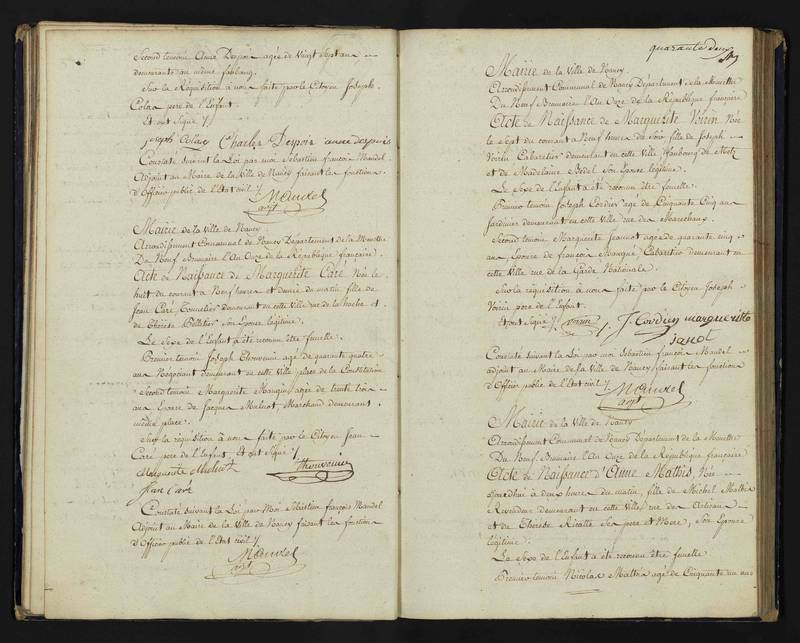 Second temoin Anne Despoix agée de vingt sept ans
demeurante au même faubourg.
Sur la Réquisition à nous faite par le Citoyen Joseph
Colas pere de l'Enfant.
Et ont Signé /.
joseph Colas Charles Despoix anne despoix
Constaté suivant la Loi par moi Sébastien françois Mandel
Adjoint au Maire de la Ville de Nancy faisant les fonctions
d'Officier public de l'Etat civil /.
Mandel
adjt
Mairie de la Ville de Nancy
Arrondissement Communal de Nancy Département de la Meurthe
Du Neuf Brumaire l'An Onze de la République française
Acte de Naissance de Marguerite Caré Née le
huit du courant à Neuf heures et demie du matin fille de
Jean Caré Cordelier demeurant en cette Ville rue de la hache et
de Thérèse Pelletier son Epouse légitime.
Le Sexe de l'Enfant a été reconnu être femelle.
Premier temoin Joseph Thouvenin agé de quarante quatre
ans Négociant demeurant en cette Ville place de la Constitution
Second temoin Marguerite Mangin agée de trente trois
ans Epouse de Jacques Mulnot Marchand demeurant
même place.
Sur la réquisition à nous faite par le Citoyen Jean
Caré pere de l'Enfant. Et ont Signé /.
Marguerite Thouvenin
Jean Caré
Constaté suivant la Loi par Moi Sébastien françois Mandel
Adjoint au Maire de la Ville de Nancy faisant les fonctions
d'Officier public de l'Etat civil /.
Mandel
adjt
quarante deux
Mairie de la Ville de Nancy
Arrondissement Communal de Nancy Département de la Meurthe
Du Neuf Brumaire l'An Onze de la République française
Acte de Naissance de Marguerite Voirin Née
le Sept du courant à Neuf heures du Soir fille de Joseph
Voirin Cabaretier demeurant en cette Ville faubourg de Metz
et de Madelaine Bedel Son Epouse légitime.
Le Sexe de l'Enfant a été reconnu être femelle.
Premier temoin Joseph Cordier agé de Cinquante Cinq ans
Jardinier demeurant en cette Ville rue des Marechaux.
Second temoin Marguerite Jeannot agée de quarante cinq
ans Epouse de françois Mangué Cabaretier demeurant en
cette Ville rue de la Garde Nationale.
Sur la réquisition à nous faite par le Citoyen Joseph
Voirin pere de l'Enfant.
Et ont Signé /. voirin /. J. Cordier marguerite
janot
Constaté suivant la Loi par moi Sébastien françois Mandel
adjoint au Maire de la Ville de Nancy faisant les fonctions
d'Officier public de l'Etat civil /.
Mandel
adjt
Mairie de la Ville de Nancy
Arrondissement Communal de Nancy Département de la Meurthe
Du Neuf Brumaire l'An Onze de la République française
Acte de Naissance d'Anne Mathis, Née
aujourdhui à deux heures du matin, fille de Michel Mathis
Revendeur demeurant en cette Ville rue des Artisans
et de Thérèse Ricatte Ses pere et Mere, Son Epouse
légitime.
Le Sexe de l'Enfant a été reconnu être femelle.
Premier temoin Nicolas Mathis agé de Cinquante un ans